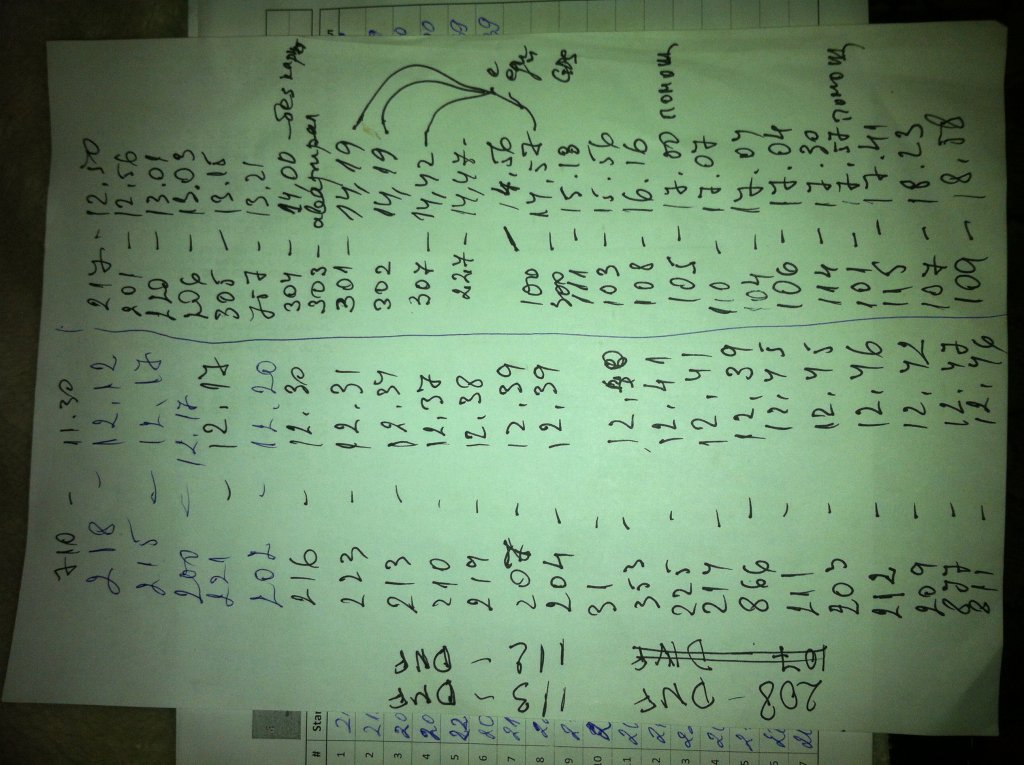 710 - 11.30
218 - 12.12
215 - 12.17
200 - 12.17
221 - 12.17
202 - 12.20
216 - 12.30
223 - 12.31
213 - 12.34
210 - 12.37
219 - 12.38
207 - 12.39
204 - 12.39
31 -
353 - 12.40
225 - 12.41
214 - 12.41
866 - 12.39
211 - 12.45
203 - 12.45
212 - 12.46
209 - 12.42
877 - 12.47
811 - 12.46
217 - 12.50
201 - 12.56
220 - 13.01
206 - 13.03
305 - 13.15
757 - 13.21
304 - 14,00 - без карты
303 -
301 - 14,19
302 14,19
307 - 14,42
227 - 14,47
100 - 14.56
300 - 14,57
111 - 15.18
103 - 15.56
108 - 16.16
105 - 17.00 помощ
110 - 17.07
104 - 17.04
106 - 17.04
114 - 17.30
101 - 17.57 помощ
115 - 17.41
107 - 18.23
109 - 18.58
112 - DNF
113 - DNF
208 - DNF
# Star
1
2
3
4
5
6
7
8
9
10
11
12
13
14